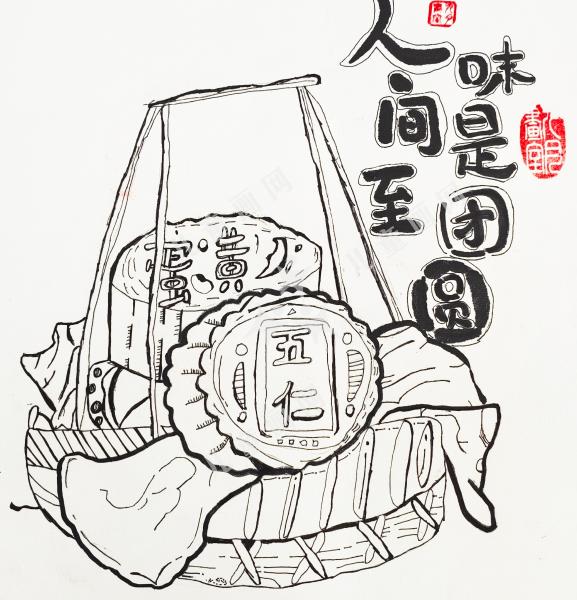 人间至
味是团圆
蛋黄
五仁